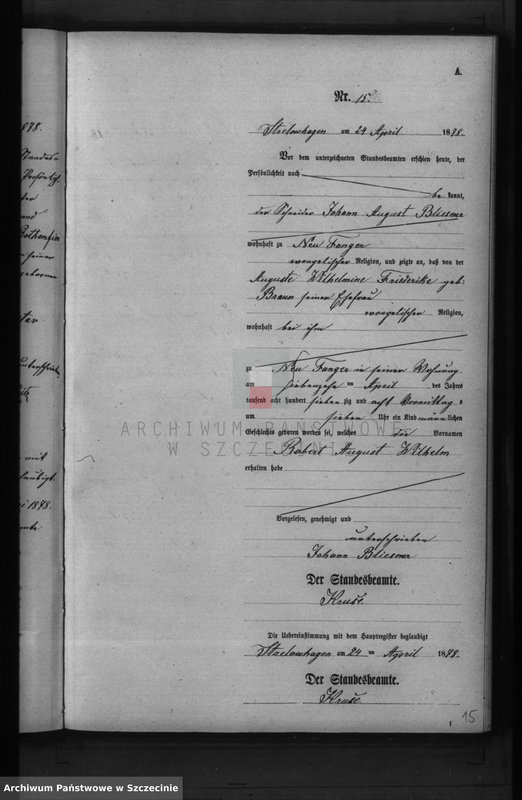 A.
Nr. 15.
Strelowhagen am 24 April 1878.
Vor dem unterzeichneten Standesbeamten erschien heute, der
Persönlichkeit nach
be kannt,
der Schneider Johann August Bliesner
wohnhaft zu Neu Fanger
evangelischer Religion, und zeigte an, daß von der
Auguste Wilhelmine Friederike geb:
Braun seiner Ehefrau
evangelischer Religion,
wohnhaft bei ihm
zu Neu Fanger in seiner Wohnung
am siebenzehn ten April des Jahres
tausend acht hundert sieben zig und acht Vormittag s
um sieben Uhr ein Kind männlichen
Geschlechts geboren worden sei, welches die Vornamen
Robert August Wilhelm
erhalten habe
Vorgelesen, genehmigt und
unterschrieben
Johann Bliesner
Der Standesbeamte.
Kruse
Die Uebereinstimmung mit dem Hauptregister beglaubigt
Strelowhagen am 24 ten April 1878.
Der Standesbeamte.
Kruse
15
1878.
Standes=
Persönlich
und
Rothenfier
seiner
geborne
mit
1878.
ARCHIWUM PAŃSTWOWE
W SZCZECINIE
Archiwum Państwowe w Szczecinie